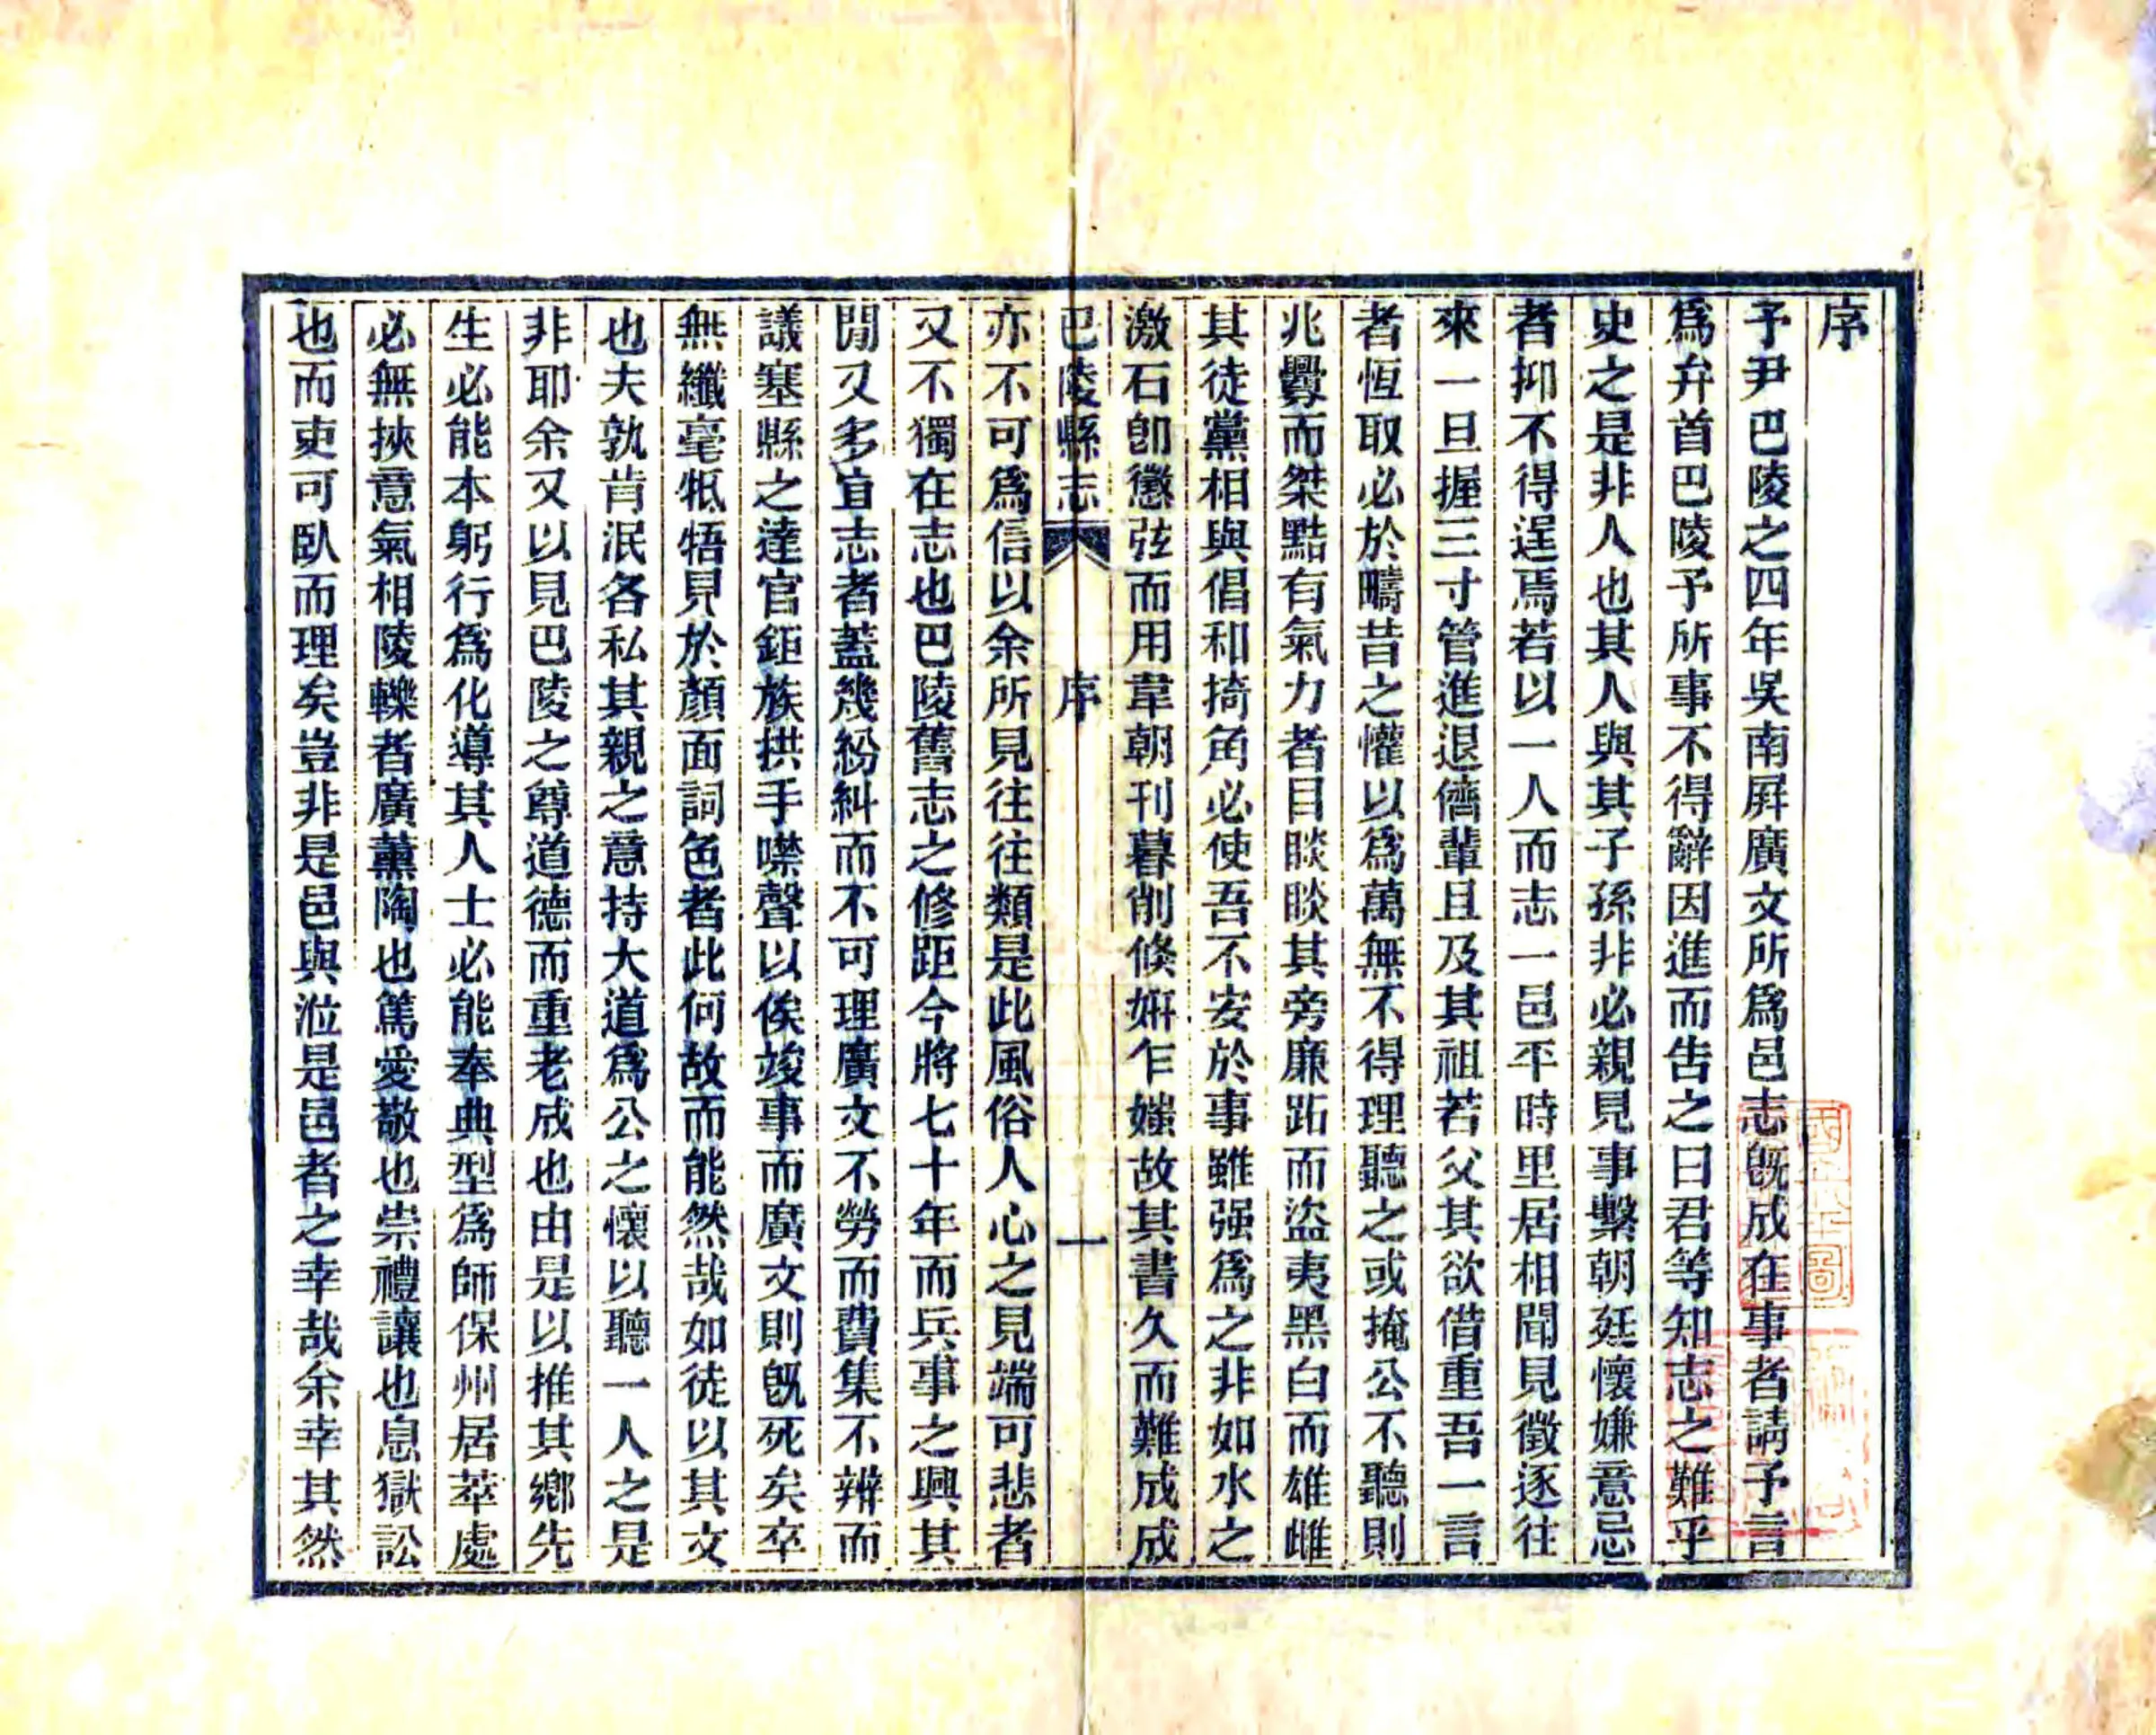 序
予尹巴陵之四年吳南屛廣文所爲邑志旣成在事者請予言
爲弁首巴陵予所事不得辭因進而告之曰君等知志之難乎
史之是非人也其人與其子孫非必親見事繫朝廷懷嫌意忌
者抑不得逞焉若以一人而志一邑平時里居相聞見徵逐往
來一旦握三寸管進退儕輩且及其祖若父其欲借重吾一言
者恆取必於疇昔之懽以爲萬無不得理聽之或掩公不聽則
兆釁而桀黠有氣力者目睒睒其旁廉跖而盜夷黑白而雄雌
其徒黨相與倡和掎角必使吾不安於事雖强爲之非如水之
激石卽懲弦而用韋朝刊暮削倏姸乍媸故其書久而難成成
巴陵縣志 序 一
亦不可爲信以余所見往往類是此風俗人心之見端可悲者
又不獨在志也巴陵舊志之修距今將七十年而兵事之興其
閒又多宜志者蓋幾紛糾而不可理廣文不勞而費集不辨而
議塞縣之達官鉅族拱手噤聲以俟竣事而廣文則旣死矣卒
無纖毫牴牾見於顏面詞色者此何故而能然哉如徒以其文
也夫孰肯泯各私其親之意持大道爲公之懷以聽一人之是
非耶余又以見巴陵之尊道德而重老成也由是以推其鄕先
生必能本躬行爲化導其人士必能奉典型爲師保州居萃處
必無挾意氣相陵轢者廣薰陶也篤愛敬也崇禮讓也息獄訟
也而吏可臥而理矣豈非是邑與涖是邑者之幸哉余幸其然